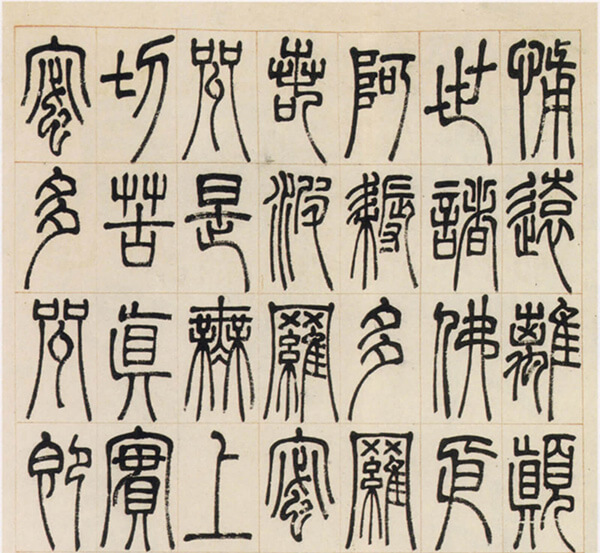 怖遠離顛
世諸佛
阿耨多羅
若波羅蜜
呪是無上
切苦眞實
蜜多呪即